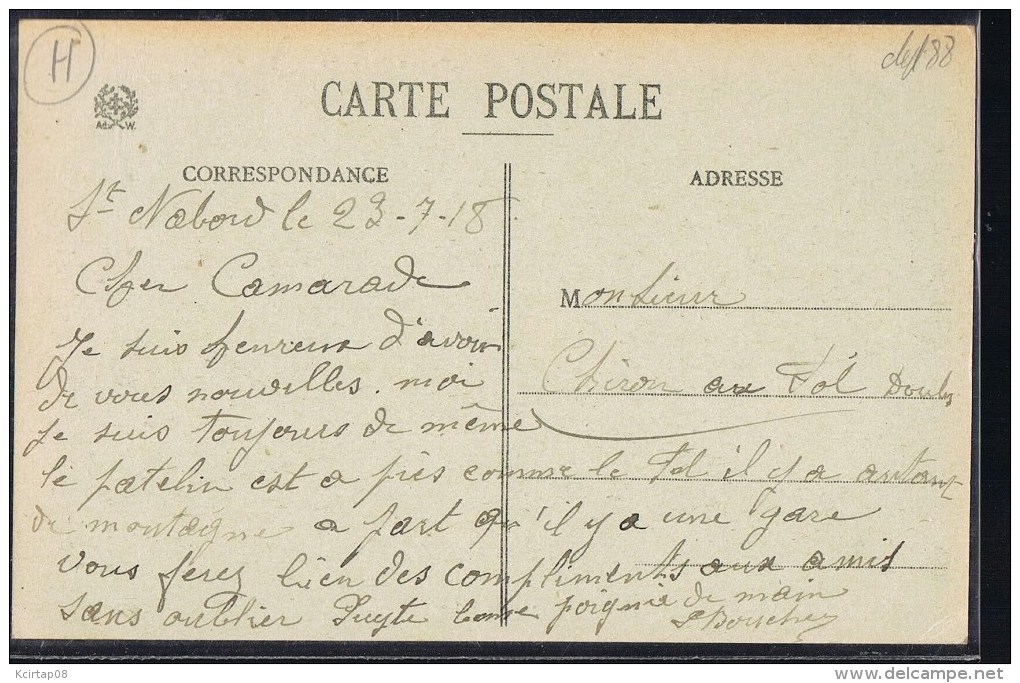 H
dept 88
Ad. W.
CARTE POSTALE
CORRESPONDANCE
ADRESSE
St Nabord le 23-7-18
Cher Camarade
Monsieur
Chiron au Fol Doubs
Je suis heureux d'avoir
de vous nouvelles. moi
je suis toujours de même
le patelin est a près comme le Fol il y a autant
de montagne a part qu'il y a une gare
vous ferez bien des compliments aux amis
sans oublier bonne poignée de main
Kcirtap08
www.delcampe.net